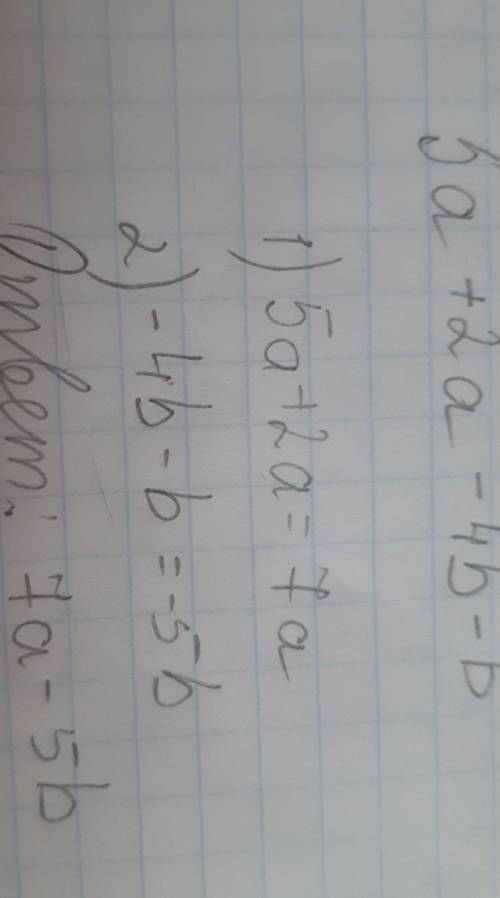 5a + 2a - 4b - b
1) 5a + 2a = 7a
2) - 4b - b = -5b
Ответ: 7a - 5b